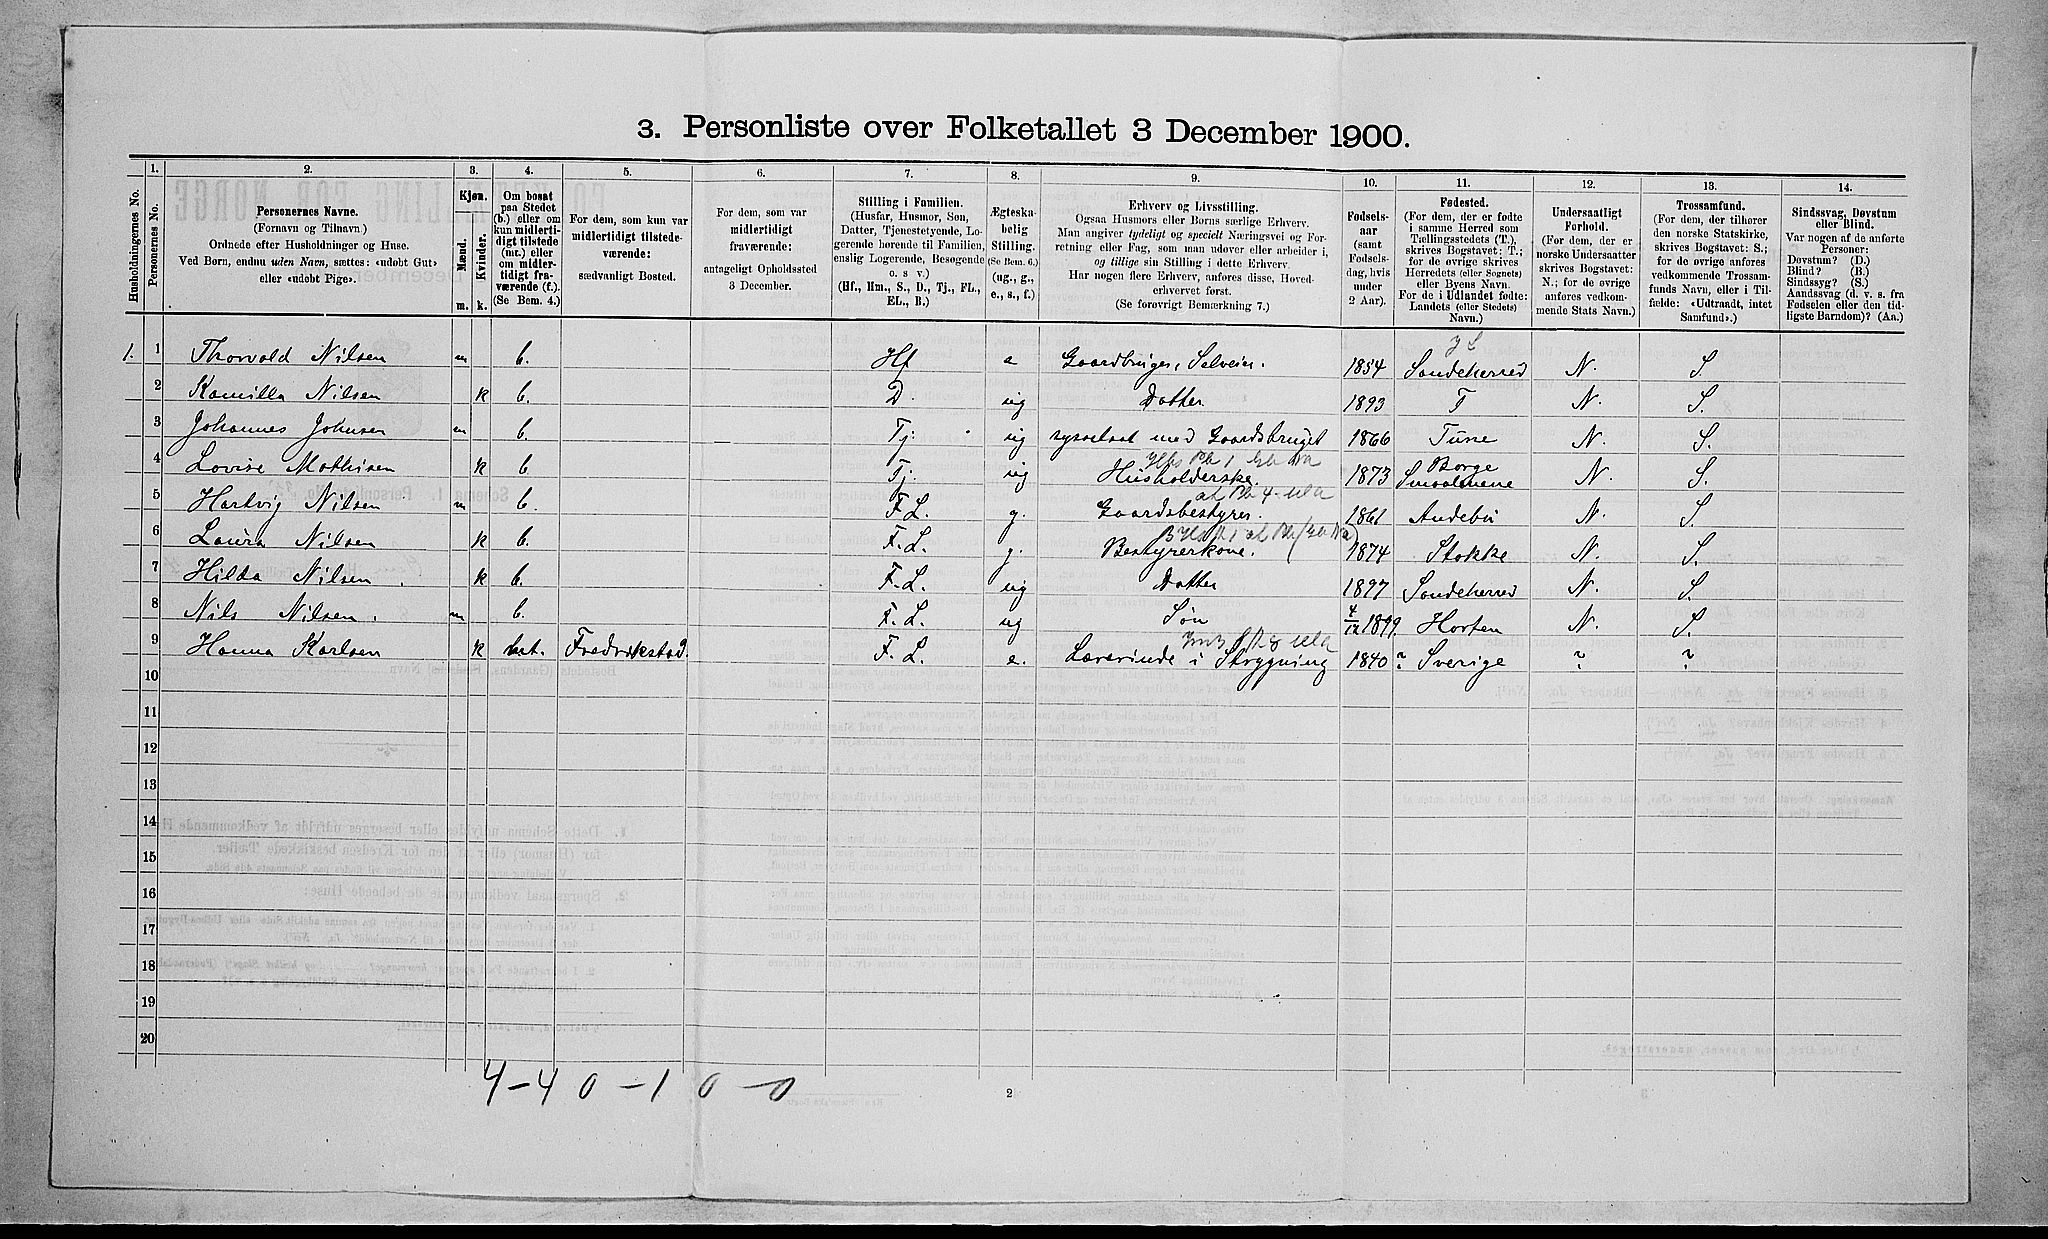 3. Personliste over Folketallet 3 December 1900.
Husholdningernes No.
1. Personernes No.
2. Personernes Navne.
(Fornavn og Tilnavn.)
Ordnede efter Husholdninger og Huse.
Ved Børn, endnu uden Navn, sættes: «udøbt Gut»
eller «udøbt Pige».
3. Kjøn.
Mænd. Kvinder.
m. k.
4. Om bosat
paa Stedet
(b.) eller om
kun midlerti-
digt tilstede
(mt.) eller
om midler-
tidigt fra-
værende (f.).
(Se Bem. 4.)
5. For dem, som kun var
midlertidigt tilstede-
værende:
sædvanligt Bosted.
6. For dem, som var
midlertidigt
fraværende:
antageligt Opholdssted
3 December.
7. Stilling i Familien.
(Husfar, Husmor, Søn,
Datter, Tjenestetyende, Lo-
gerende hørende til Familien,
enslig Logerende, Besøgende
o. s v.)
(Hf., Hm., S., D., Tj., FL.,
EL., B.)
8. Ægteska-
belig
Stilling.
(Se Bem. 6.)
(ug., g.,
e., s., f.)
9. Erhverv og Livsstilling.
Ogsaa Husmors eller Børns særlige Erhverv.
Man angiver tydeligt og specielt Næringsvei og For-
retning eller Fag, som man udøver eller arbeider i,
og tillige sin Stilling i dette Erhverv.
Har nogen flere Erhverv, anføres disse, Hoved-
erhvervet først.
(Se forøvrigt Bemærkning 7.)
10. Fødsels-
aar
(samt
Fødsels-
dag, hvis
under
2 Aar).
11. Fødested.
(For dem, der er fødte
i samme Herred som
Tællingsstedets (T.),
skrives Bogstavet: T.;
for de øvrige skrives
Herredets (eller Sognets)
eller Byens Navn.
For de i Udlandet fødte:
Landets (eller Stedets)
Navn.)
12. Undersaatligt
Forhold.
(For dem, der er
norske Undersaatter
skrives Bogstavet:
N.; for de øvrige
anføres vedkom-
mende Stats Navn.)
13. Trossamfund.
(For dem, der tilhører
den norske Statskirke,
skrives Bogstavet: S.;
for de øvrige anføres
vedkommende Trossam-
funds Navn, eller i Til-
fælde: «Udtraadt, intet
Samfund».)
14. Sindssvag, Døvstum
eller Blind.
Var nogen af de anførte
Personer:
Døvstum? (D.)
Blind? (B.)
Sindssyg? (S.)
Aandssvag (d. v. s. fra
Fødselen eller den tid-
ligste Barndom)? (Aa.)
1. 1 Thorvald Nilsen m b. Hf e Gaardbruger, Selveier. 1854 Sandeherred N. S.
2 Kamilla Nilsen k b. D. ug Datter 1893 T N. S.
3 Johannes Johnsen m b. Tj. ug sysselsat med Gaardsbruget 1866 Tune N. S.
4 Lovise Mathisen k b Tj. ug Husholderske. 1873 Borge Smaalenene N. S.
5 Hartvig Nilsen m b. F L. g. Gaardsbestyrer. 1861 Andebu N. S.
6 Laura Nilsen k b. F. L. g. Bestyrerkone. 1874 Stokke N. S.
7 Hilda Nilsen k b. F. L. ug Datter 1897 Sandeherred N. S.
8 Nils Nilsen. m b. F. L. ug Søn 4/12 1899. Horten N. S.
9 Hanna Karlsen k mt. Fredrikstad. F. L. e. Lærerinde i Strygning 1840 ? Sverige ? ?
10
11
12
13
14
15
16
17
18
19
20
4-4 0-1 0-0
2